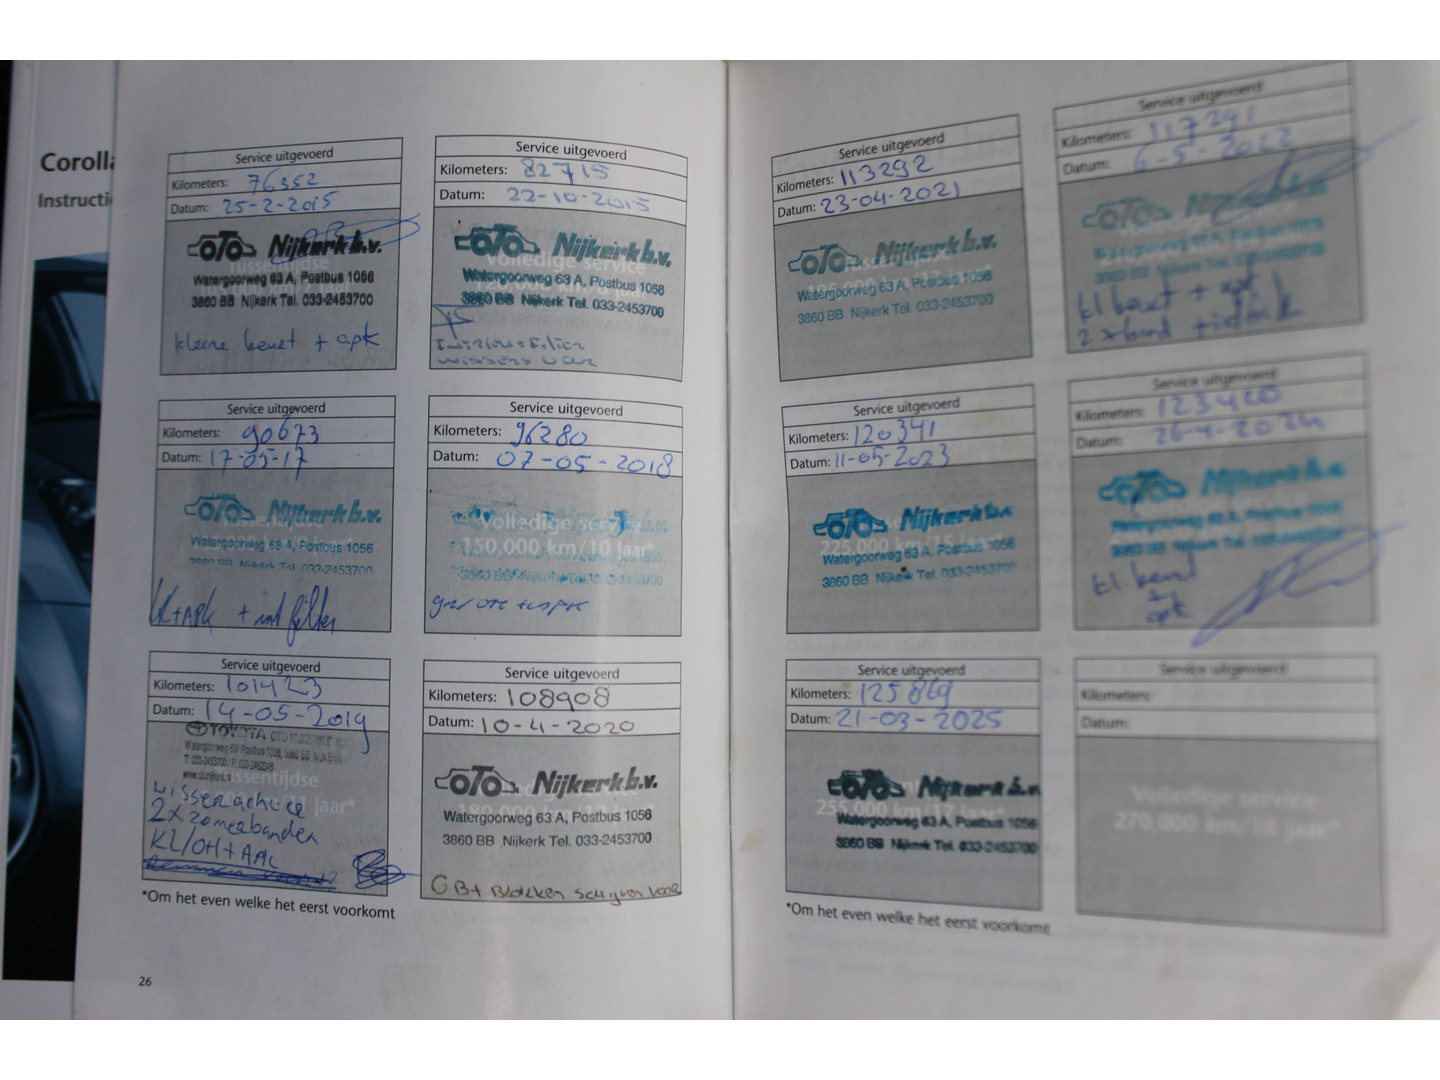 Corolla
Instructi
Service uitgevoerd
Kilometers: 76352
Datum: 25-2-2015
OTO Nijkerk b.v.
Tussentijdse
Watergoorweg 63 A, Postbus 1056
3860 BB Nijkerk Tel. 033-2453700
kleine beurt + apk
Service uitgevoerd
Kilometers: 82715
Datum: 22-10-2015
OTO Nijkerk b.v.
Volledige service
Watergoorweg 63 A, Postbus 1056
120,000 km/8 jaar*
3860 BB Nijkerk Tel. 033-2453700
wissers voor
Service uitgevoerd
Kilometers: 90673
Datum: 17-05-17
OTO Nijkerk b.v.
Watergoorweg 63 A, Postbus 1056
3860 BB Nijkerk Tel. 033-2453700
Kl+APK + int filter
Service uitgevoerd
Kilometers: 96280
Datum: 07-05-2018
Volledige service
150,000 km/10 jaar*
3860 BB Nijkerk Tel. 033-2453700
Service uitgevoerd
Kilometers: 101423
Datum: 14-05-2019
TOYOTA OTO NIJKERK B.V.
Watergoorweg 63 Postbus 1056, 3860 BB NIJKERK
Tussentijdse
2x zomerbanden
KL/OH + APK
Service uitgevoerd
Kilometers: 108908
Datum: 10-4-2020
OTO Nijkerk b.v.
180,000 km/12 jaar*
Watergoorweg 63 A, Postbus 1056
3860 BB Nijkerk Tel. 033-2453700
GB+ Blokken schijven voor
*Om het even welke het eerst voorkomt
26
Service uitgevoerd
Kilometers: 113292
Datum: 23-04-2021
OTO Nijkerk b.v.
Watergoorweg 63 A, Postbus 1056
3860 BB Nijkerk Tel. 033-2453700
Service uitgevoerd
Kilometers: 117291
Datum: 6-5-2022
OTO Nijkerk b.v.
kl beurt + apk
2x band +
Service uitgevoerd
Kilometers: 120341
Datum: 11-05-2023
OTO Nijkerk b.v.
225,000 km/15 jaar*
Watergoorweg 63 A, Postbus 1056
3860 BB Nijkerk Tel. 033-2453700
Service uitgevoerd
Kilometers: 123420
Datum: 26-4-2024
OTO Nijkerk b.v.
Watergoorweg 63 A, Postbus 1056
3860 BB Nijkerk Tel. 033-2453700
kl beurt
apk
Service uitgevoerd
Kilometers: 125869
Datum: 21-03-2025
OTO Nijkerk b.v.
255,000 km/17 jaar*
Watergoorweg 63 A, Postbus 1056
3860 BB Nijkerk Tel. 033-2453700
Service uitgevoerd
Kilometers:
Datum:
Volledige service
270,000 km/18 jaar*
*Om het even welke het eerst voorkomt